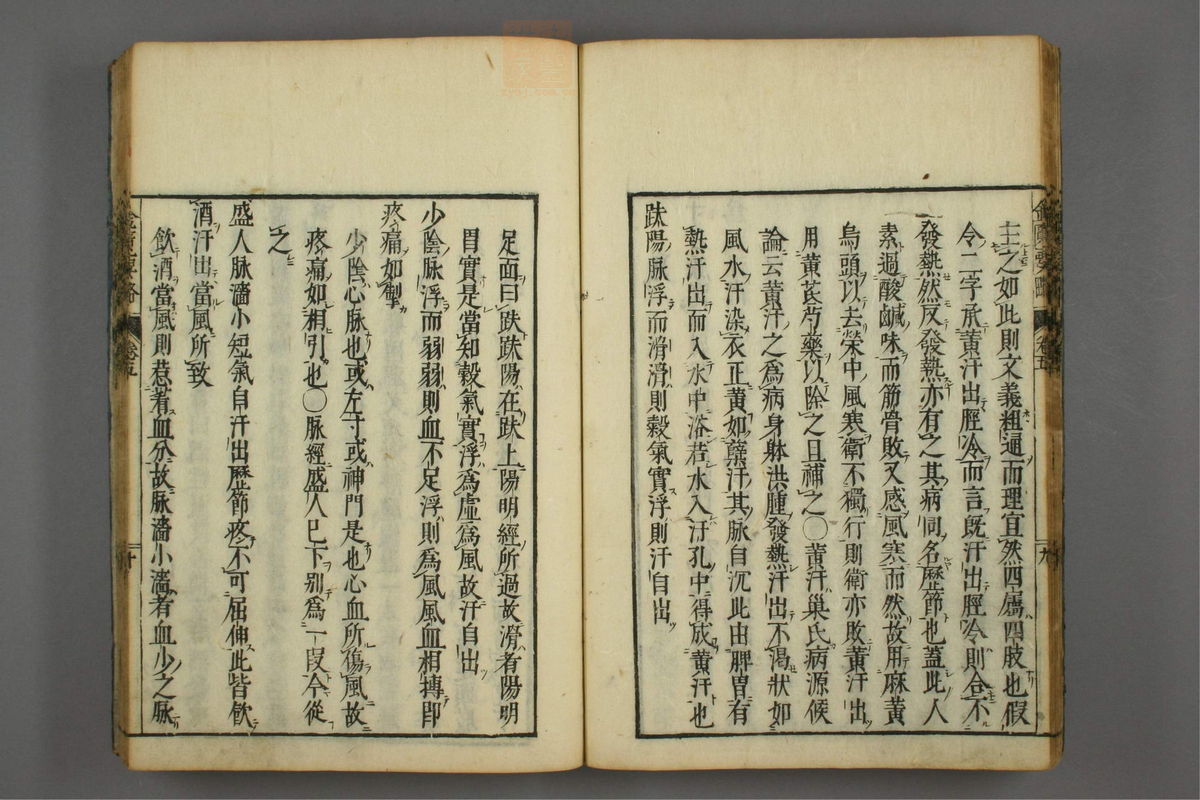 主之如此則文義粗通而理宜然四屬四肢也假
令二字承黃汗出脛冷而言既汗出脛冷則合不
發熱然反發熱亦有之其病同名歷節也蓋此人
素過酸鹹味而筋骨敗又感風寒而然故用麻黃
烏頭以去榮中風寒衛不獨行則衛亦敗黃汗出
用黃芪芍藥以除之且補之〇黃汗巢氏病源候
論云黃汗之為病身躰洪腫發熱汗出不渴狀如
風水汗染衣正黃如蘗汗其脉自沉此由脾胃有
熱汗出而入水中浴若水入汗孔中得成黃汗也
趺陽脉浮而滑滑則穀氣實浮則汗自出
足面曰趺趺陽在趺上陽明經所過故滑者陽明
胃實是當知穀氣實浮為虛為風故汗自出
少陰脉浮而弱弱則血不足浮則為風風血相摶即
疼痛如掣
少陰心脉也或左寸或神門是也心血所傷風故
疼痛如相引也〇脉經盛人已下別為一段今從
之
盛人脉濇小短氣自汗出歷節疼不可屈伸此皆飲
酒汗出當風所致
飲酒當風則惹著血分故脉濇小濇者血少之脉
卷五
九
十